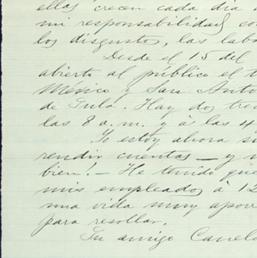 ellas crecen cada día
mi responsabilidad, con
los disgusto, las labo
Desde el 15 del
abierto al público el t
México y San Anto
de Tula. Hay dos tre
las 8 a.m. y á las 4
Yo estoy ahora su
rendir cuentas — y
bien! — He tenido que
mis empleados á 12
una vida muy aporr
para resollar.
Tu amigo Canelo